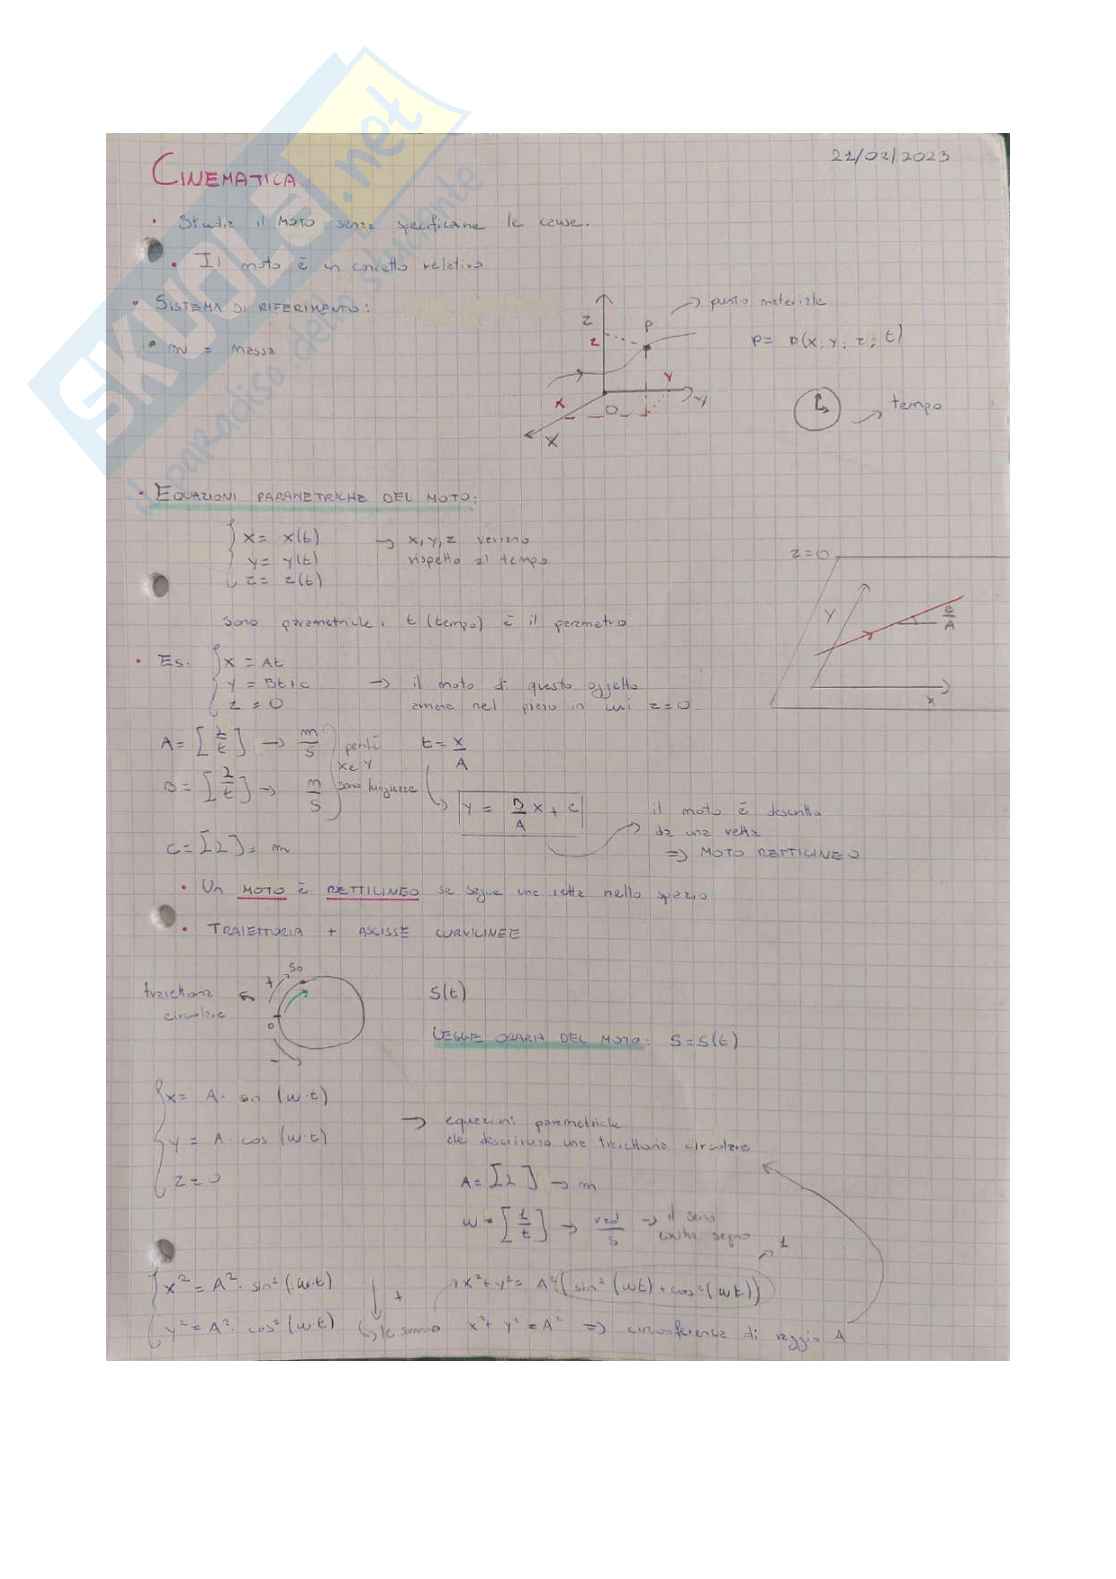 SKUOLA.net
il paradiso dello studente
21/02/2023
CINEMATICA
• Studia il MOTO senza specificarne le cause.
• Il moto è un concetto relativo
• SISTEMA DI RIFERIMENTO:
→ punto materiale
z
P
z
P = P(x, y, z, t)
• m = massa
y
x
O
y
x
→ tempo
• EQUAZIONI PARAMETRICHE DEL MOTO:
x = x(t) → x, y, z variano
y = y(t) rispetto al tempo
z = z(t)
z=0
y
B/A
x
sono parametriche, t (tempo) è il parametro
• Es. x = At
y = Bt+c → il moto di questo oggetto
z = 0 avviene nel piano in cui z=0
A = [L/t] → m/s perché x e y
B = [L/t] → m/s sono lunghezze
t = x/A
y = B/A x + c
il moto è descritto
da una retta
=> MOTO RETTILINEO
C = [L] = m
• Un MOTO è RETTILINEO se segue una retta nello spazio
• TRAIETTORIA + ASCISSE CURVILINEE
traiettoria
circolare
+ S0
0
-
S(t)
LEGGE ORARIA DEL MOTO: S=S(t)
x = A · sin (w·t)
y = A · cos (w·t)
z = 0
→ equazioni parametriche
che descrivono una traiettoria circolare
A = [L] → m
w = [1/t] → rad/s → il seno
x² = A² · sin² (w·t)
y² = A² · cos² (w·t)
+
le sommo
x²+y² = A²(sin² (wt) + cos² (wt))
1
x² + y² = A² => circonferenza di raggio A